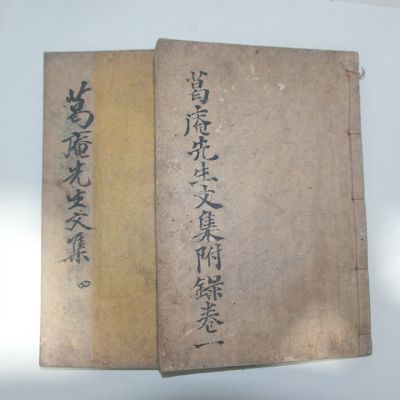 葛庵先生文集附錄卷一
葛庵先生文集 四